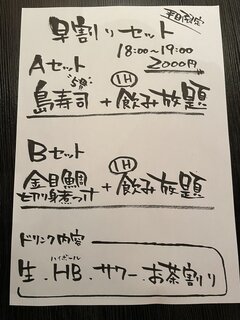 平日限定
早割りセット
18:00～19:00
Aセット 2000円
5貫 1H
島寿司 + 飲み放題
Bセット
1H
金目鯛
切り身煮つけ + 飲み放題
ドリンク内容
ハイボール
生．HB．サワー．お茶割り